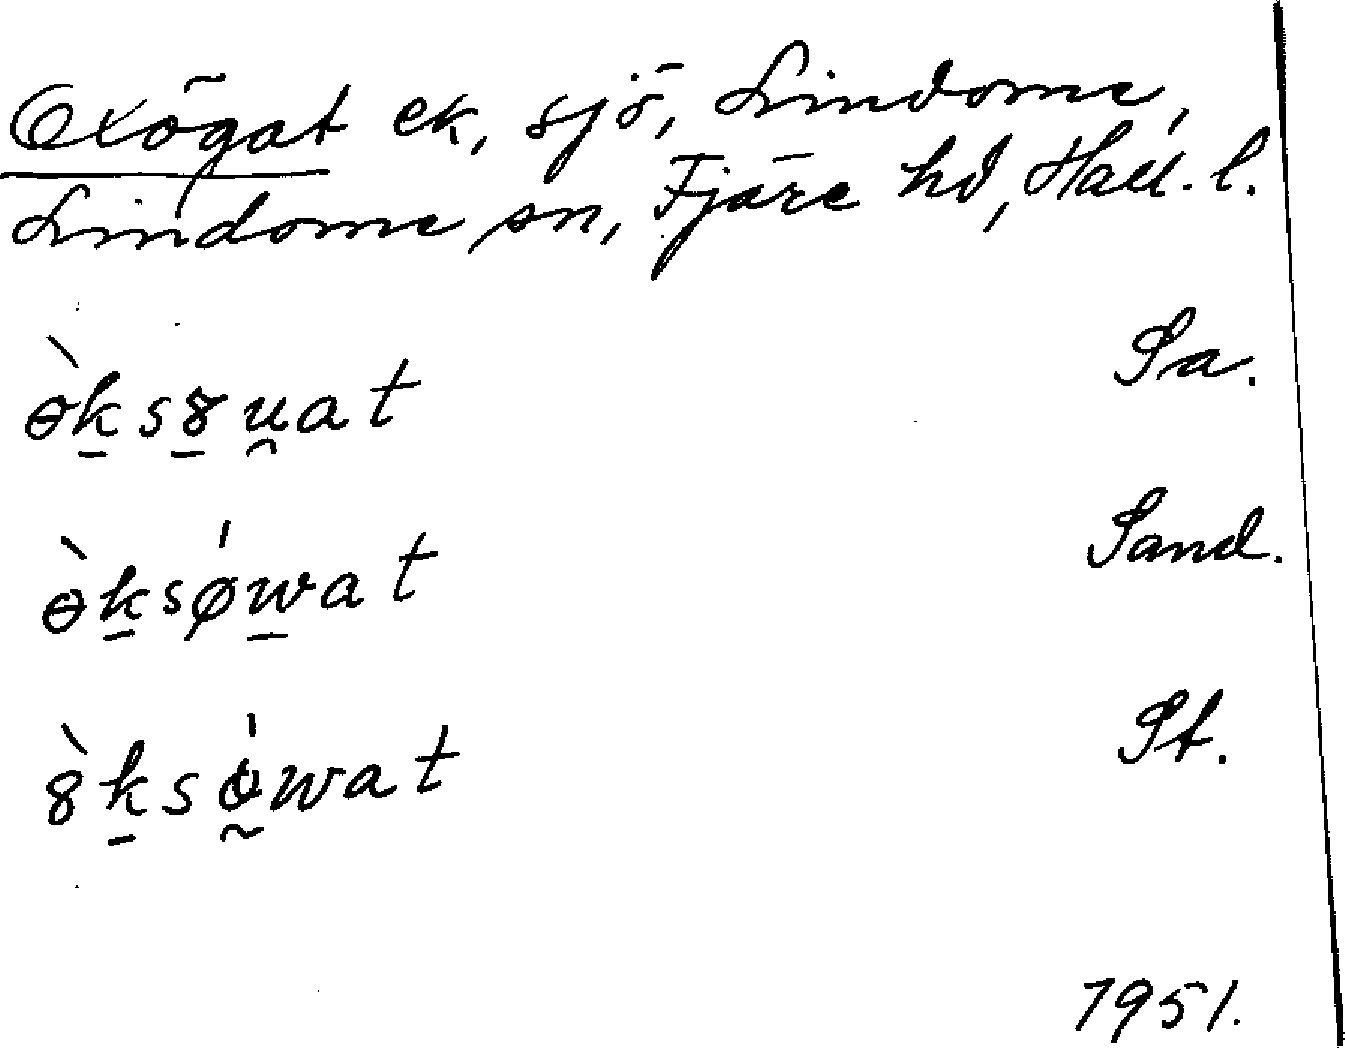 Oxögat ek, sjö, Lindome,
Lindome sn, Fjäre hd, Hall. l.
ɵ̀k̠s8̠u̯at Sa.
ɵ̀k̠sǿw̠at Sand.
8̀k̠só̰wat St.
1951.